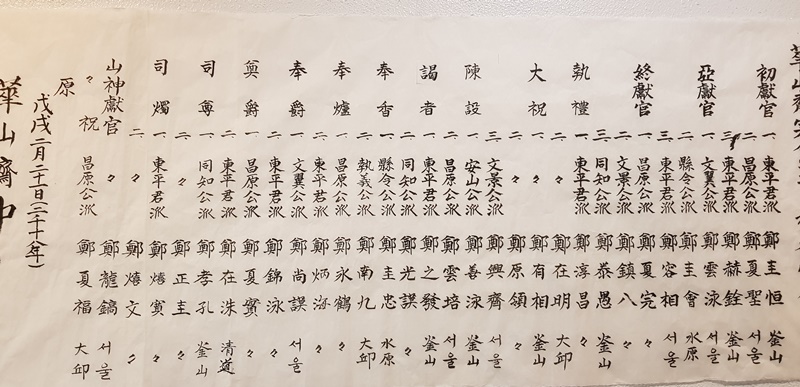 華山齋
初獻官 一 東平君派 鄭圭恒 釜山
二 昌原公派 鄭夏聖 서울
三 東平君派 鄭赫銓 釜山
亞獻官 一 文翼公派 鄭雲泳 서울
二 縣令公派 鄭圭會 水原
三 東平君派 鄭容相 서울
終獻官 一 昌原公派 鄭夏完 〃
二 文景公派 鄭鎮八 〃
三 同知公派 鄭泰愚 釜山
執禮 一 東平君派 鄭淳昌 〃
二 〃 鄭在明 大邱
大祝 一 〃 鄭有相 釜山
二 〃 鄭原領 〃
三 文景公派 鄭興齊 서울
陳設 一 安山公派 鄭善泳 釜山
二 昌原公派 鄭雲培 서울
謁者 一 東平君派 鄭之發 釜山
二 同知公派 鄭光謨 〃
奉香 一 縣令公派 鄭圭忠 水原
二 執義公派 鄭南九 大邱
奉爐 一 昌原公派 鄭永鶴 〃
二 東平君派 鄭炳海 〃
奉爵 一 文翼公派 鄭尚謨 서울
二 東平君派 鄭錦泳 〃
奠爵 一 昌原公派 鄭夏賓 〃
二 東平君派 鄭在洙 清道
司尊 一 同知公派 鄭孝孔 釜山
二 〃 鄭正圭 〃
司燭 一 東平君派 鄭熺賓 〃
二 〃 鄭熺文 〃
山神獻官 〃 鄭龍鎬 서울
〃 祝 昌原公派 鄭夏福 大邱
原
戊戌二月二十日(二千十八年)
華山齋中